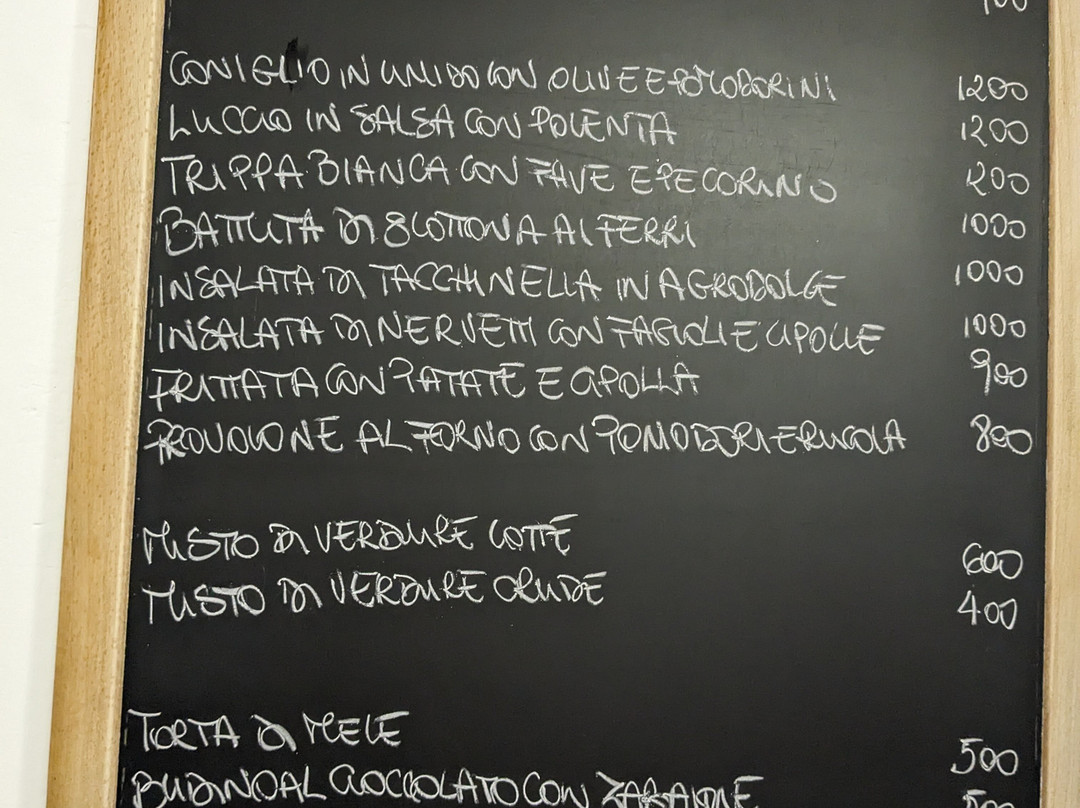 CONIGLIO IN UMIDO CON OLIVE E POMODORINI 1200
LUCCIO IN SALSA CON POLENTA 1200
TRIPPA BIANCA CON FAVE E PECORINO 1200
BATTUTA DI SCOTTONA AI FERRI 1000
INSALATA DI TACCHINELLA IN AGRODOLCE 1000
INSALATA DI NERVETTI CON FAGIOLI E CIPOLLE 1000
FRITTATA CON PATATE E CIPOLLA 900
PROVOLONE AL FORNO CON POMODORI E RUCOLA 800
MISTO DI VERDURE COTTE 600
MISTO DI VERDURE CRUDE 400
TORTA DI MELE 500
BUDINO AL CIOCCOLATO CON ZABAIONE